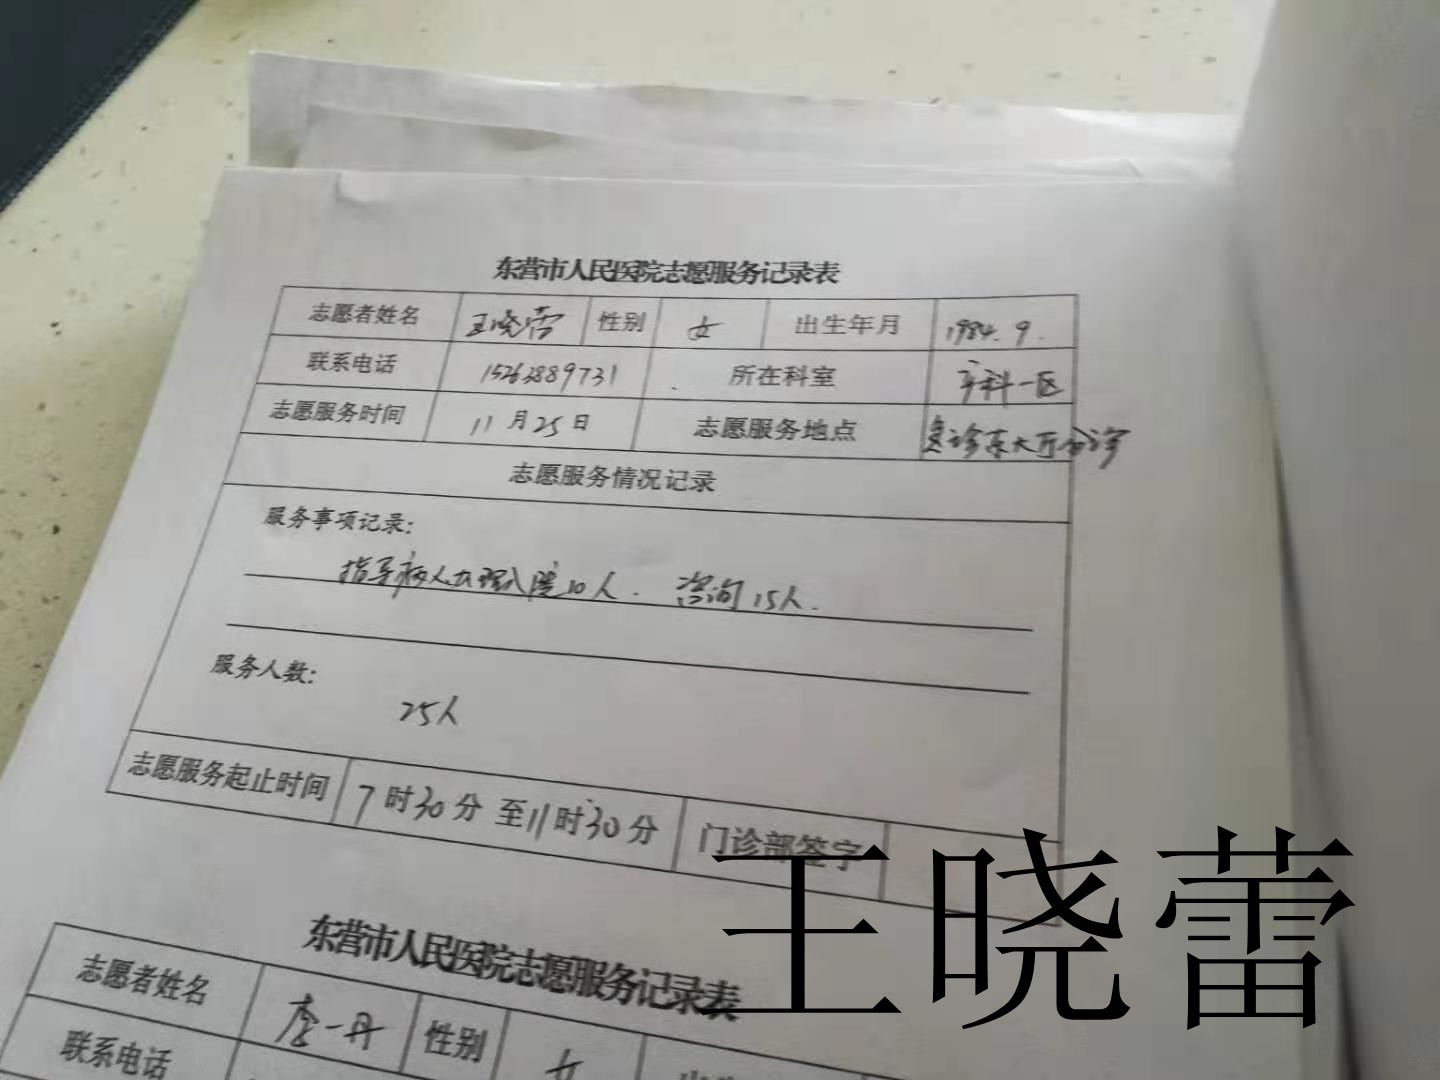 东营市人民医院志愿服务记录表
志愿者姓名 王晓蕾 性别 女 出生年月 1984.9.
联系电话 15263889731 所在科室 产科一区
志愿服务时间 11月25日 志愿服务地点 急诊东大厅分诊
志愿服务情况记录
服务事项记录:
指导病人办理入院10人. 咨询15人.
服务人数:
25人
志愿服务起止时间 7时30分至11时30分 门诊部签字
王晓蕾
东营市人民医院志愿服务记录表
志愿者姓名 一丹 性别 女
联系电话